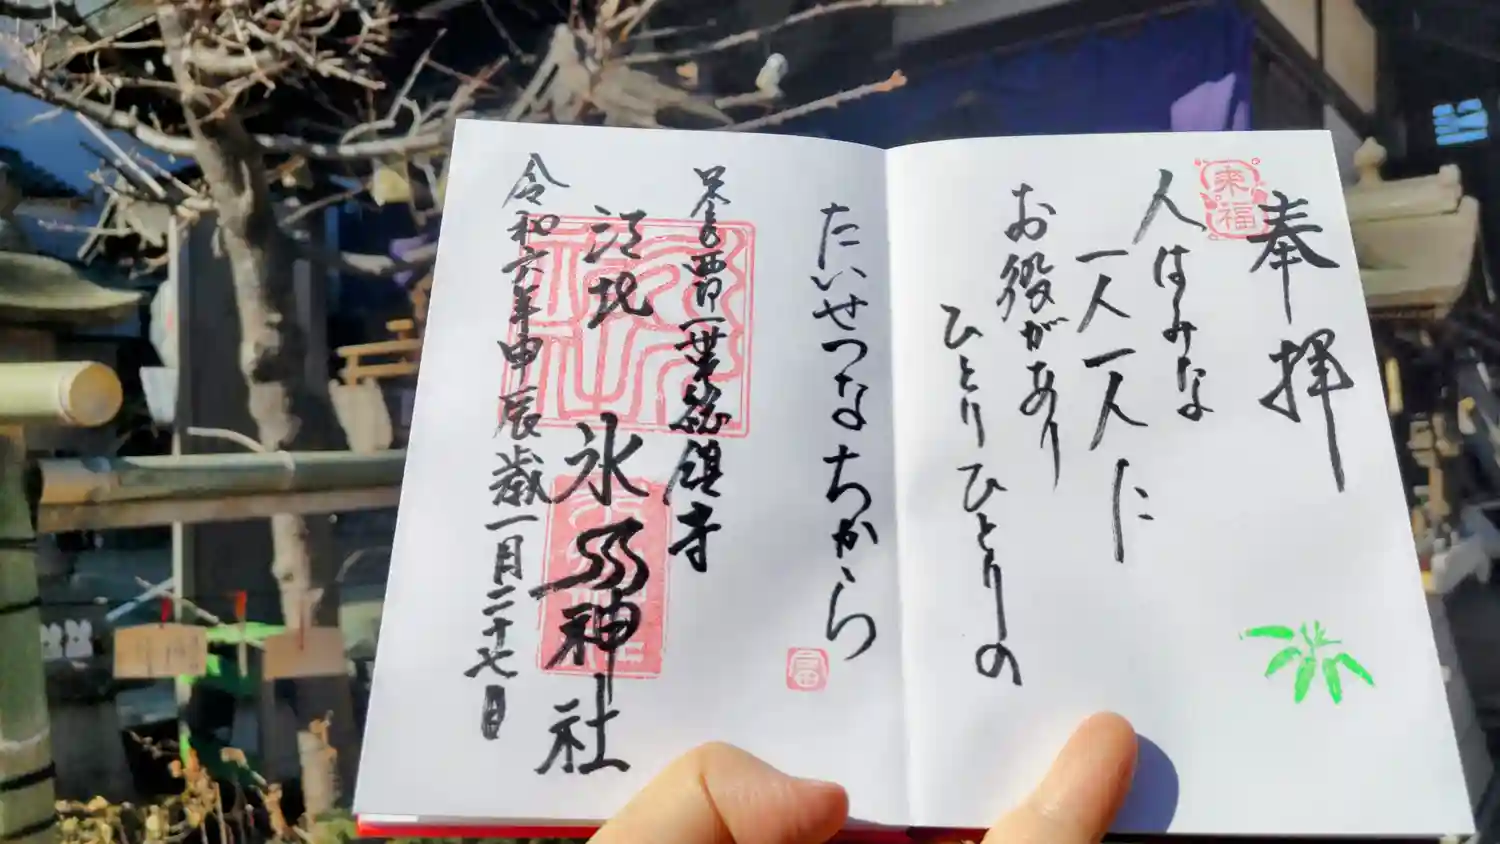 奉拝
来福
人はみな
一人一人に
お役があり
ひとりひとりの
たいせつなちから
総鎮守
氷川神社
令和六年甲辰歳一月二十七日